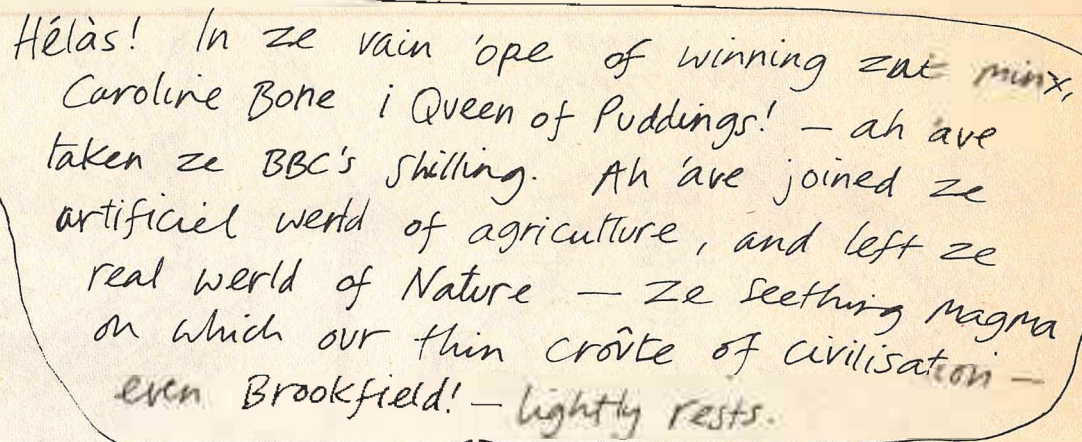 Hélàs! In ze vain 'ope of winning zat minx,
Caroline Bone ¡ Queen of Puddings! — ah 'ave
taken ze BBC's shilling. Ah 'ave joined ze
artificiel werld of agriculture, and left ze
real werld of Nature — ze seething magma
on which our thin croûte of civilisation —
even Brookfield! — lightly rests.